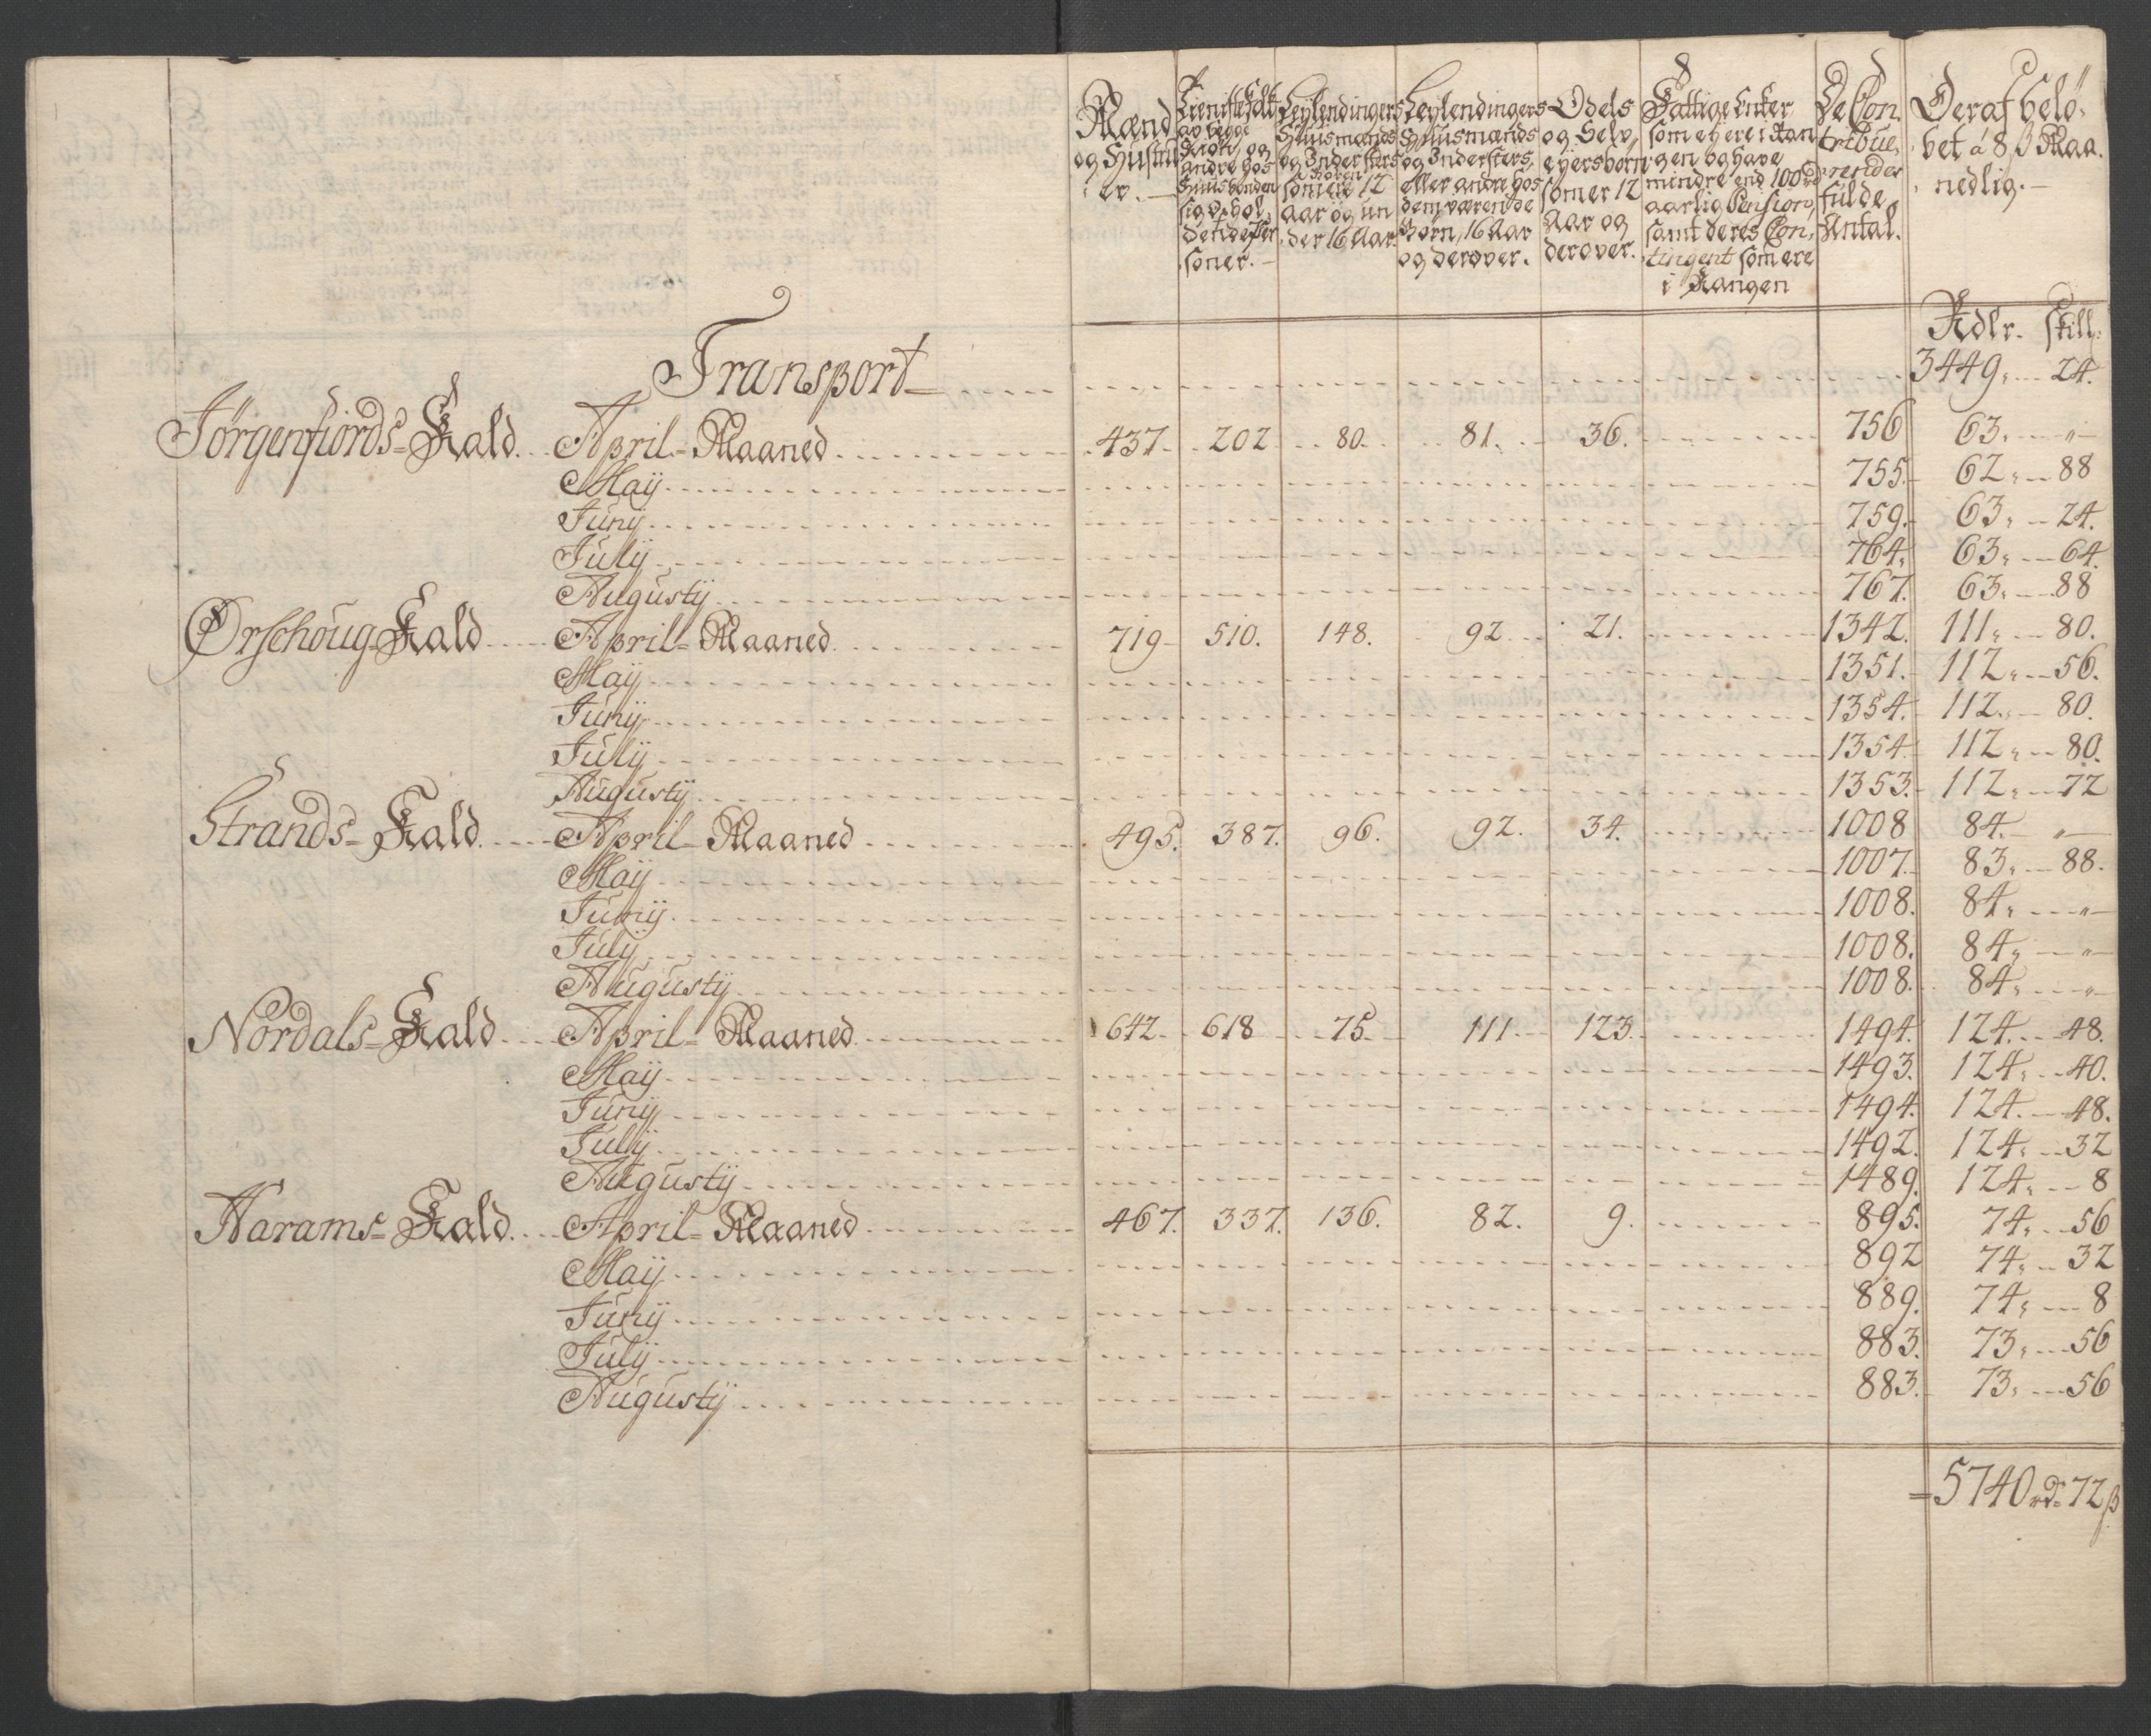 Mænd
og Hustru
er.
Tieniste Folk
av begge
Kiøn, og
andre hos
Huusbonden
sig ophol-
dende Per
soner.
Leylendingers
Huusmænds
og Indersters
Børen
som ere 12
aar og un
der 16 Aar.
Leylendingers
Huusmænds
og Indersters,
eller andre hos
dem værende
Børn, 16 Aar
og derover.
Odels
og Selv
eyers børn
som er 12
Aar og
derover.
Fattige Enker
som eyere i Ran
gen og have
mindre end 100 rd
aarlig Pension,
samt deres Con-
tingent som ere
i Rangen
De Con-
tribue-
renders
fulde
Antal.
Deraf belø-
bet á 8 β Maa-
nedlig.
Rdlr. skill:
Transport 3449. 24.
Jørgenfiords- Kald. April- Maaned 437. 202 80. 81. 36. 756 63. "
Maij 755. 62. 88
Junij 759. 63. 24.
Julij 764. 63. 64.
Augustij 767. 63. 88
Ørschoug- Kald April- Maaned 719 510. 148. 92 21. 1342. 111. 80.
Maij 1351. 112. 56.
Junij 1354. 112. 80.
Julij 1354 112. 80.
Augustij 1353. 112. 72
Strands- Kald April- Maaned 495. 387. 96. 92. 34. 1008 84. "
Maij 1007. 83. 88.
Junij 1008. 84. "
Julij 1008. 84. "
Augustij 1008. 84. "
Nordals- Kald April- Maaned 642 618 75. 111 123. 1494. 124. 48.
Maij 1493. 124. 40.
Junij 1494. 124. 48.
Julij 1492. 124. 32
Augustij 1489. 124. 8
Harams- Kald April- Maaned 467. 337. 136. 82. 9. 895. 74. 56
Maij 892 74. 32
Junij 889. 74. 8
Julij 883. 73. 56
Augustij 883. 73. 56
= 5740 rd 72 β